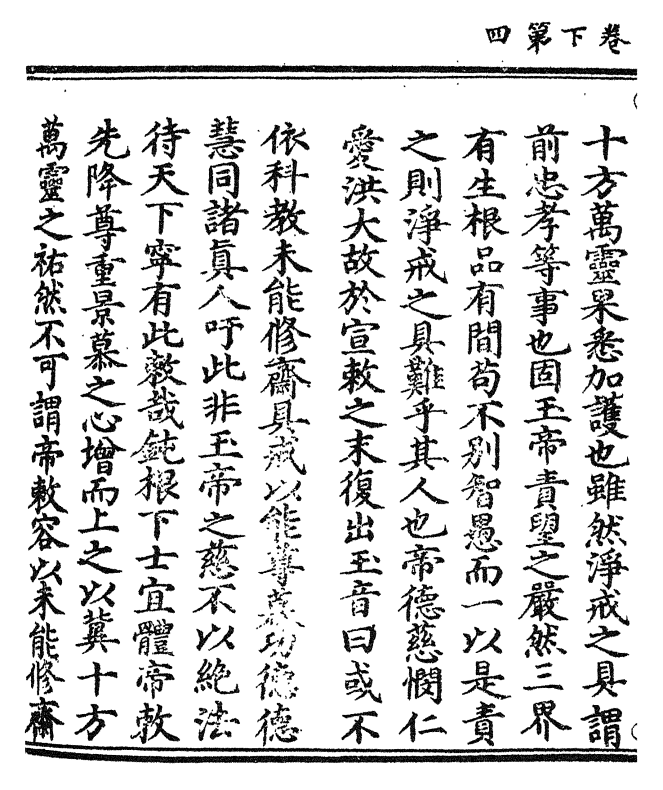 卷下第四
十方萬靈杲悉加護也雖然淨戒之具謂
前忠孝等事也固玉帝責望之嚴然三界
有生根品有間苟不别智愚而一以是責
之則淨戒之具難乎其人也帝德慈憫仁
愛洪大故於宣敕之末復出玉音曰或不
依科教未能修齋具戒以能尊慕功德德
慧同諸真人吁此非玉帝之慈不以絶法
待天下寧有此敕哉鈍根下士宜體帝敕
先降尊重景慕之心增而上之以冀十方
萬靈之祐然不可謂帝敕容以未能修齋